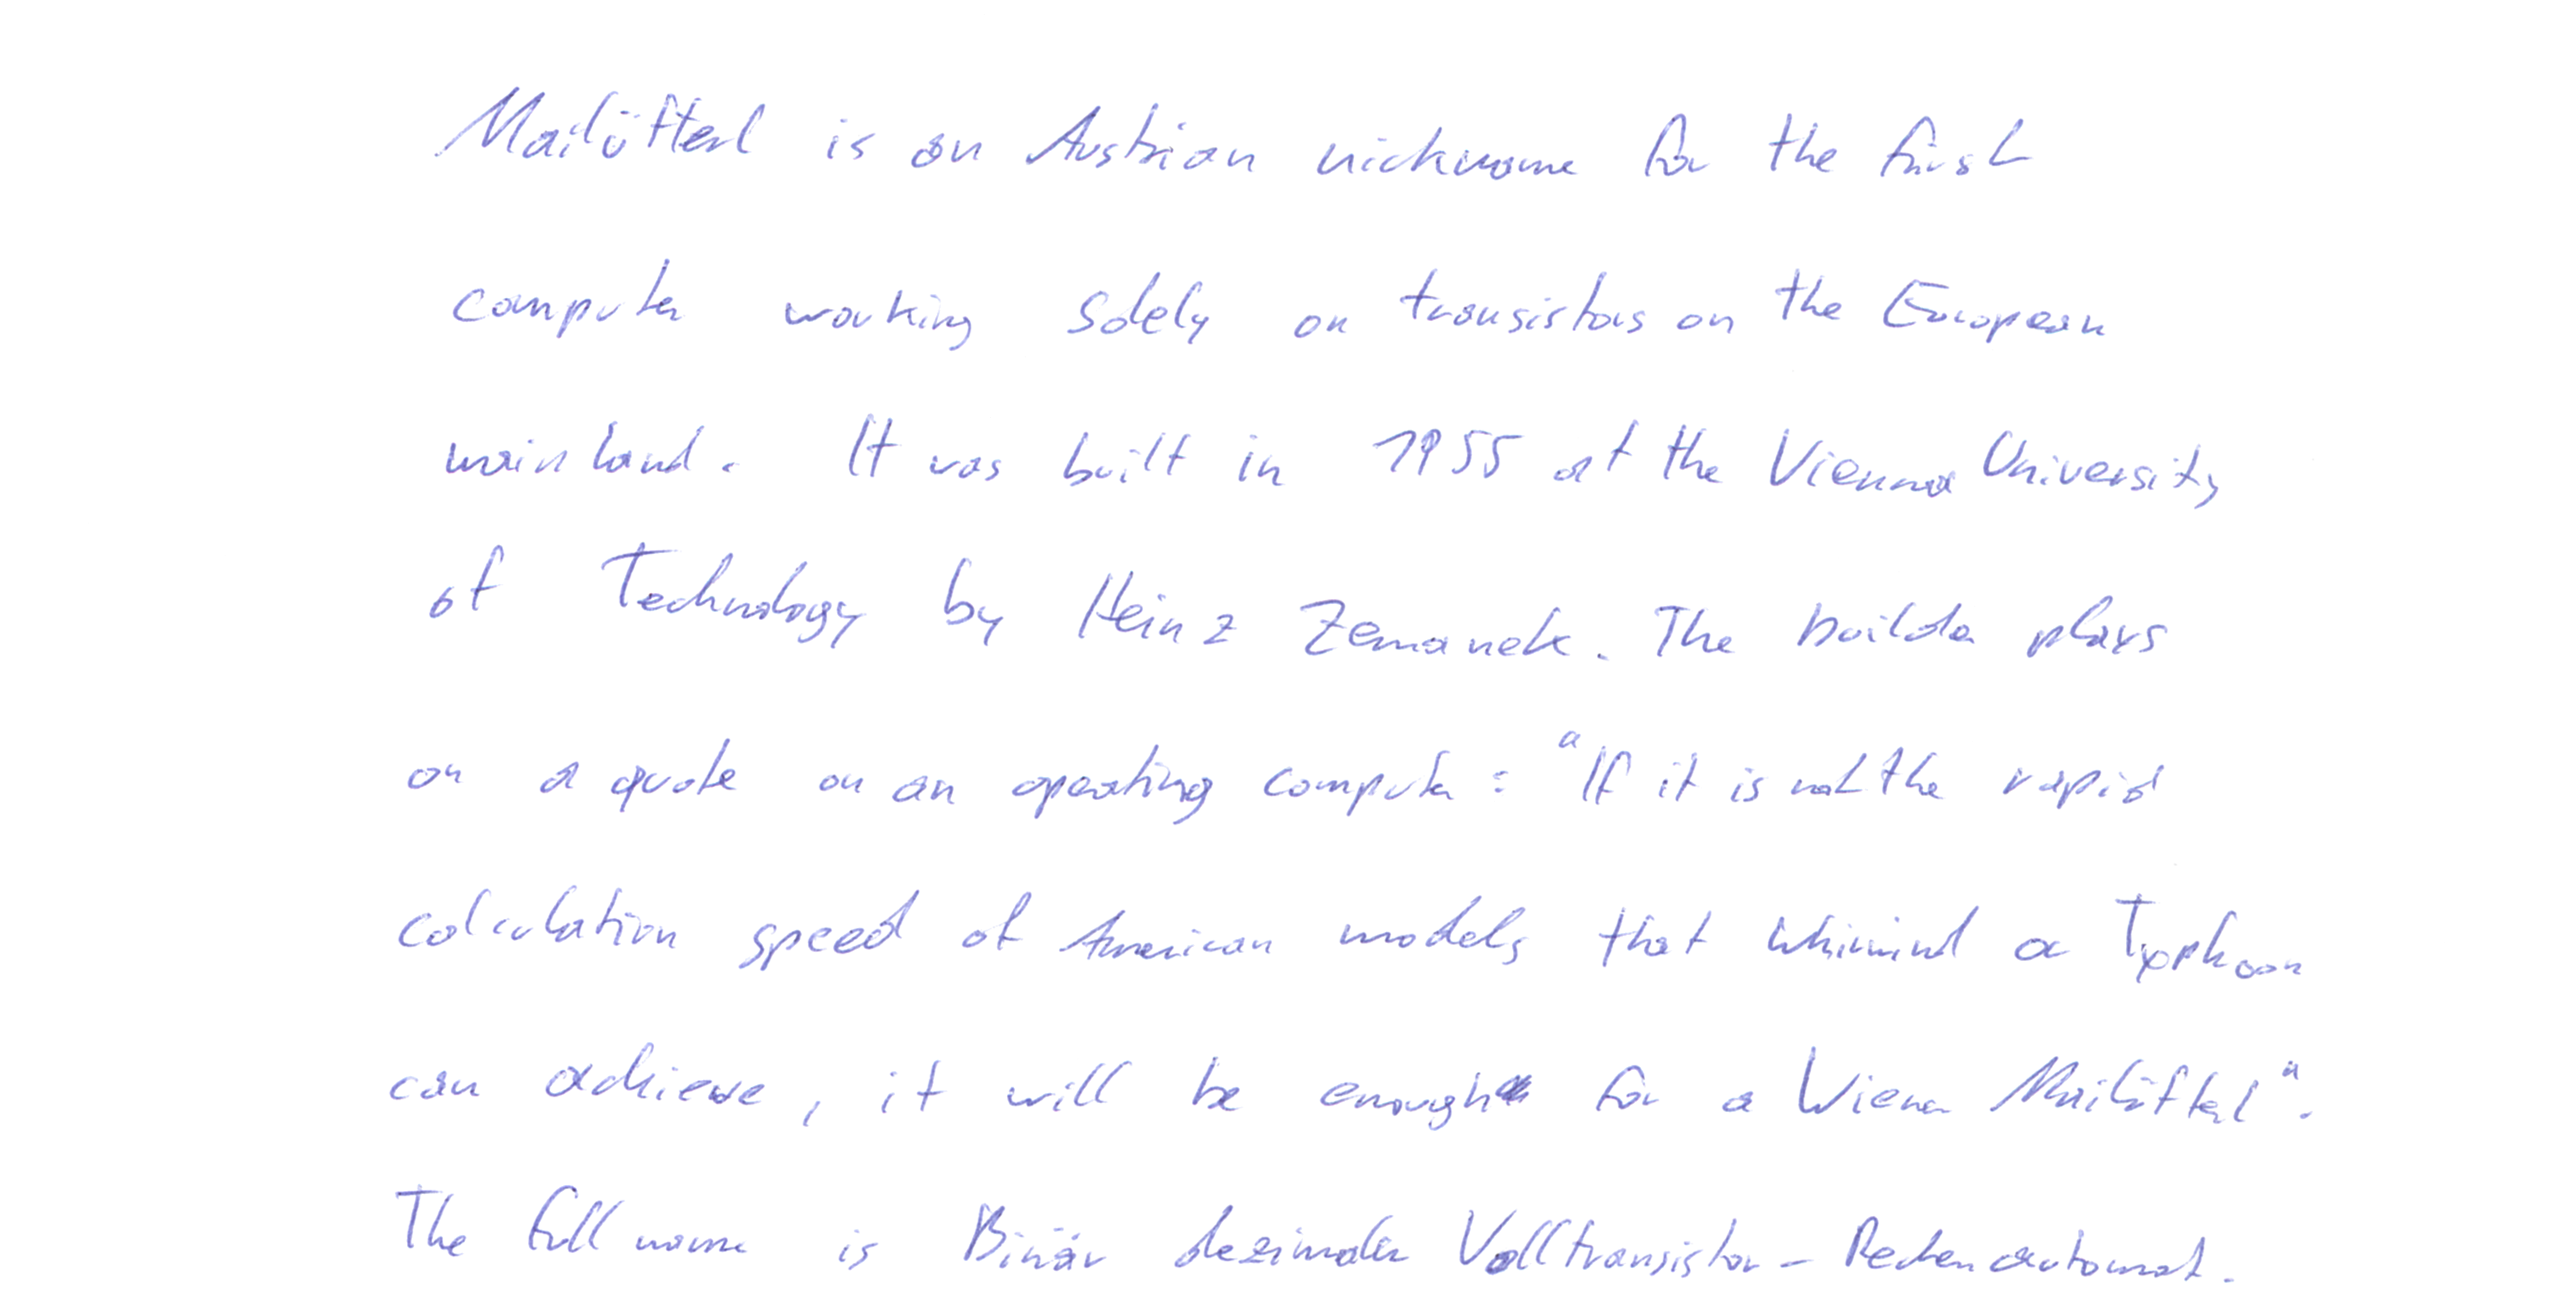 Mailüfterl is an Austrian nickname for the first
computer working solely on transistors on the European
mainland. It was built in 1955 at the Vienna University
of Technology by Heinz Zemanek. The builder plays
on a quote on an operating computer: "If it is not the rapid
calculation speed of American models that a Typhoon
can achieve, it will be enough for a Wiener Mailüfterl".
The full name is Binär dezimaler Volltransistor-Rechenautomat.